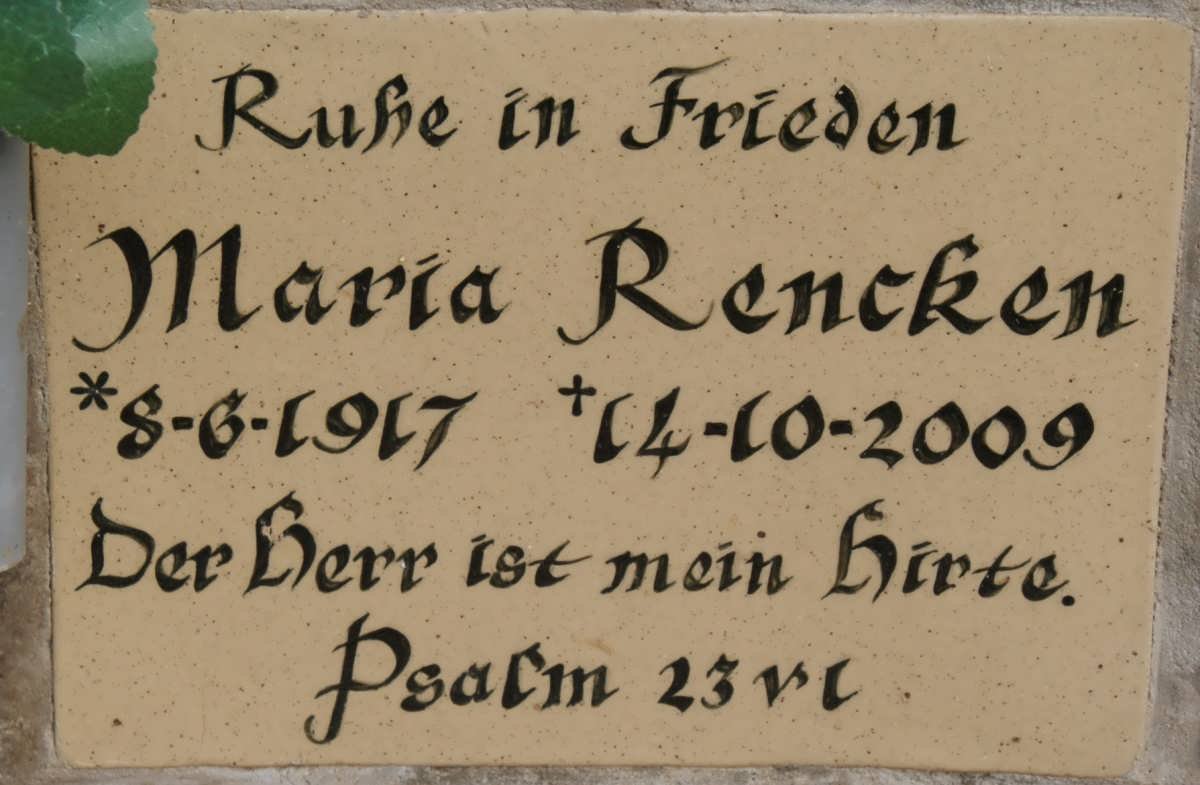 Ruhe in Frieden
Maria Rencken
*8-6-1917 †14-10-2009
Der Herr ist mein Hirte.
Psalm 23 v1